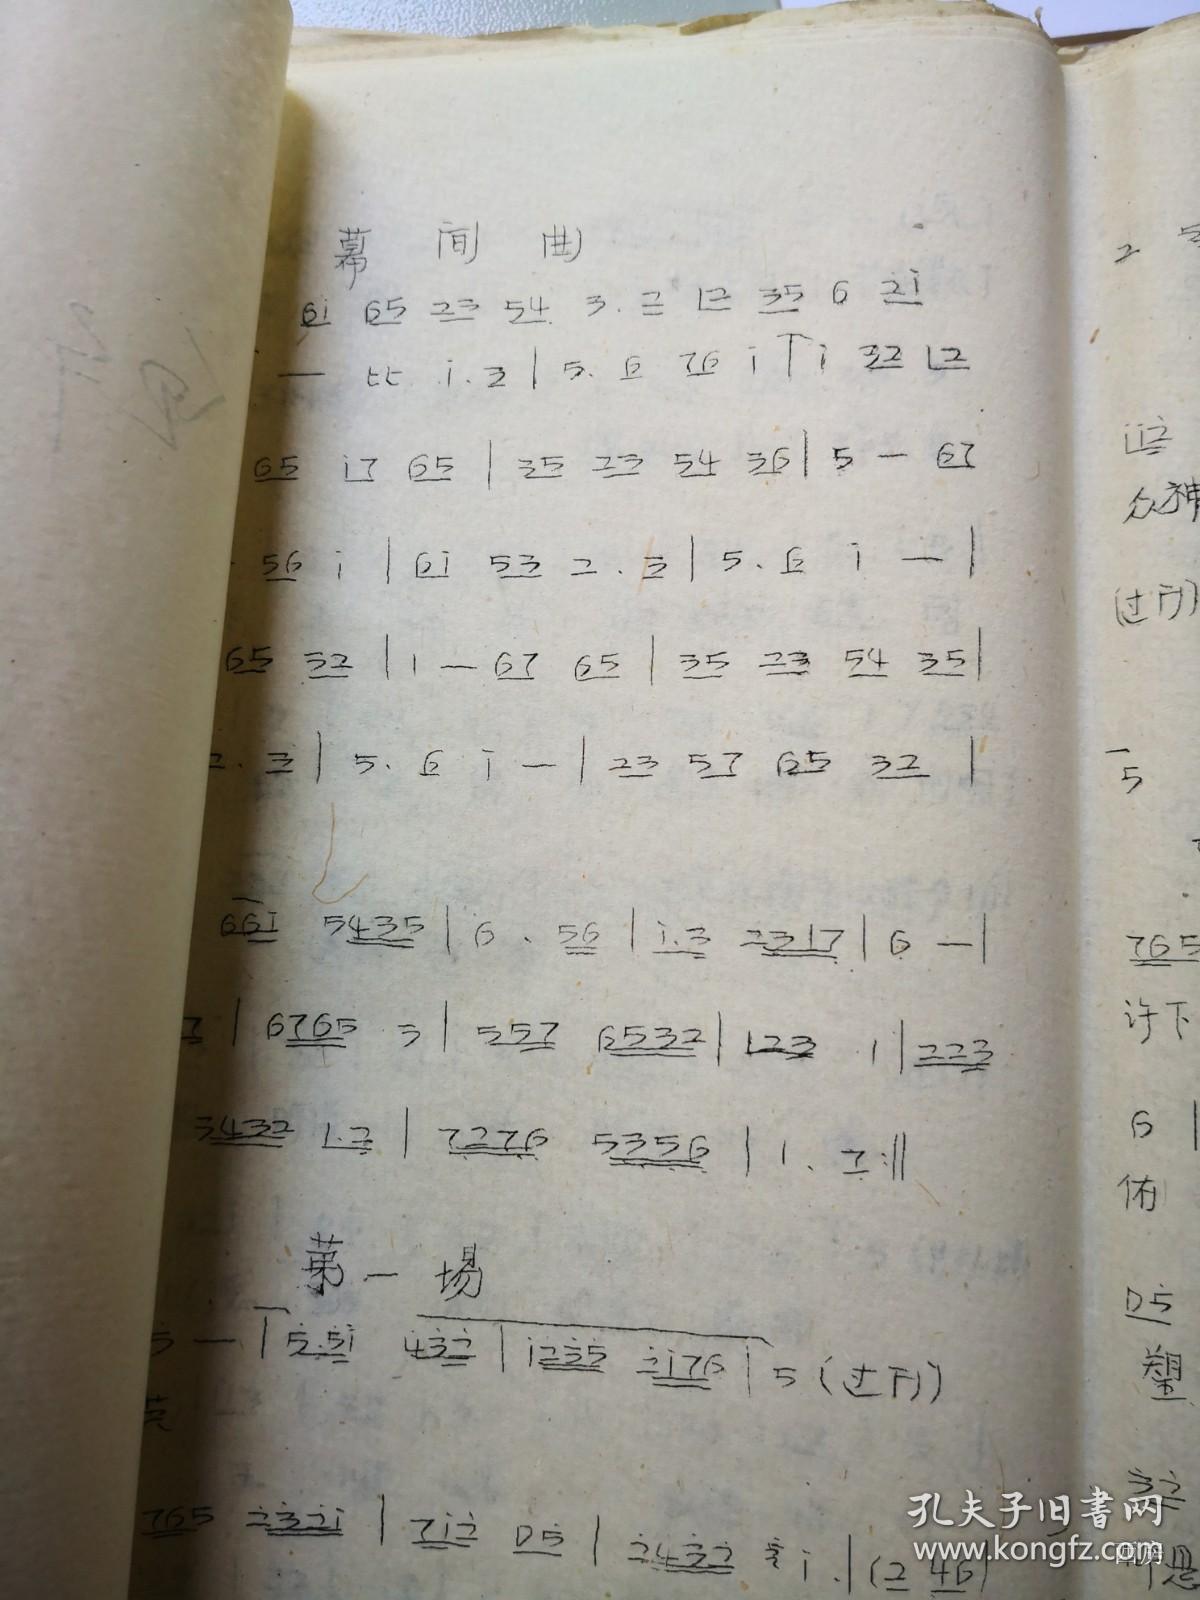 幕间曲
6i 65 23 54 3. 2 12 35 6 2i
— i. 3 | 5. 6 76 i | i 32 12
65 i7 65 | 35 23 54 36 | 5 — 67
56 i | 6i 53 2. 3 | 5. 6 i — |
65 32 | 1 — 67 65 | 35 23 54 35 |
2. 3 | 5. 6 i — | 23 57 65 32 |
66i 5435 | 6. 56 | i.3 2317 | 6 — |
7 | 6765 3 | 557 6532 | 123 1 | 223
3432 1.2 | 7276 5356 | 1. 7 :||
第一場
5 — | 5.5i 432 | i235 2i76 | 5 (过门)
765 232i | 7i2 05 | 2432 i. | (2 46)
2
ii2
众神
(过门)
5
765
许下
6 |
侑
05
塑
32
恩
孔夫子旧书网
www.kongfz.com